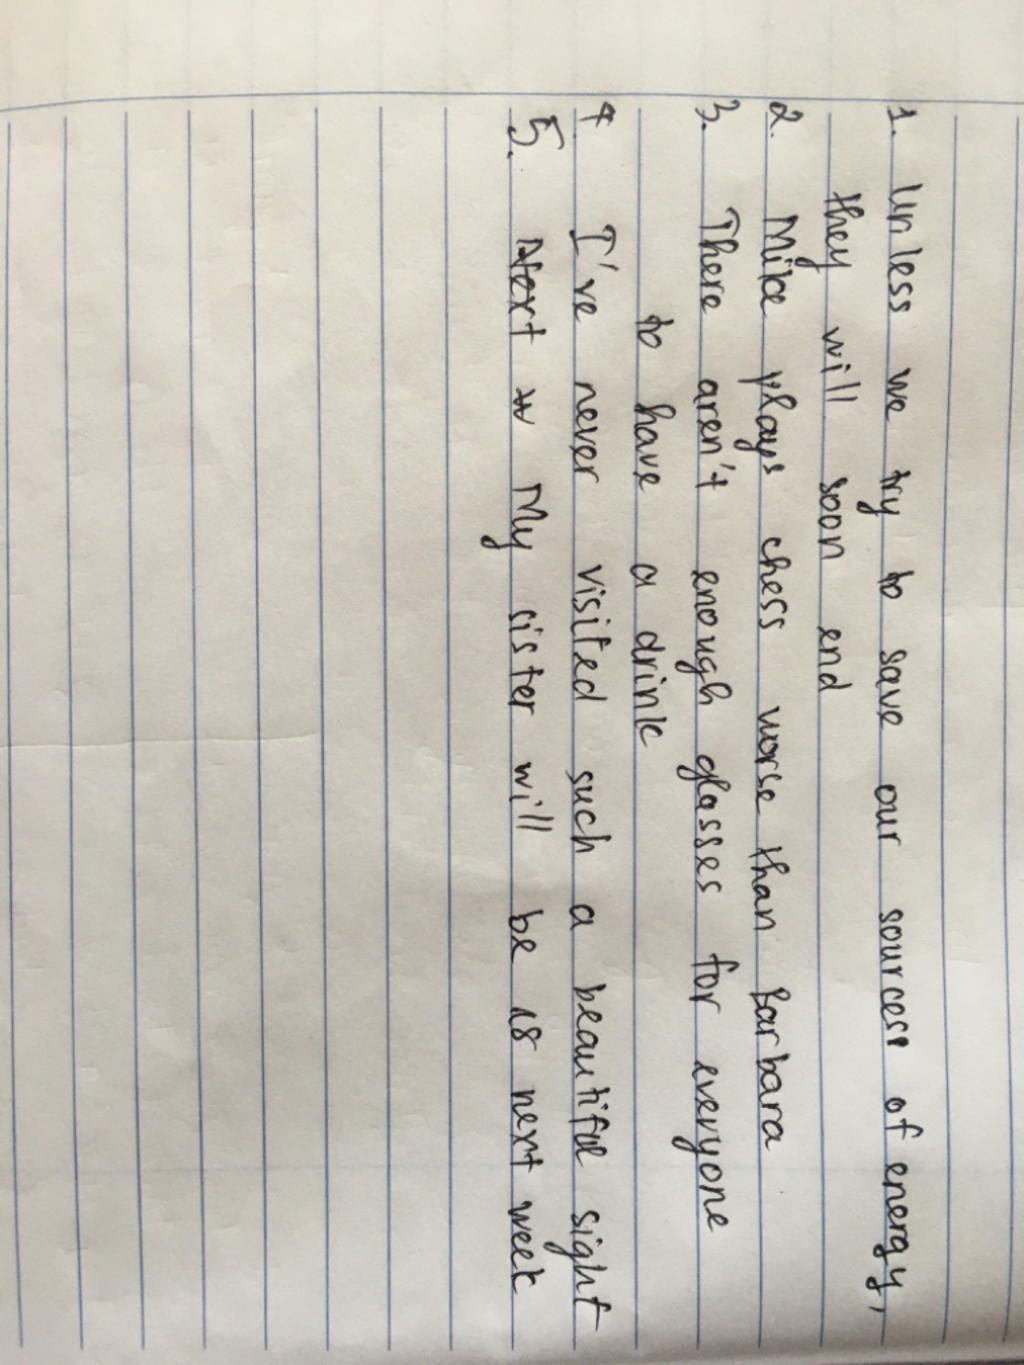 1. Unless we try to save our sources of energy,
they will soon end
2. Mike plays chess worse than Barbara
3. There aren't enough glasses for everyone
to have a drink
4 I've never visited such a beautiful sight
5. Next w My sister will be 18 next week